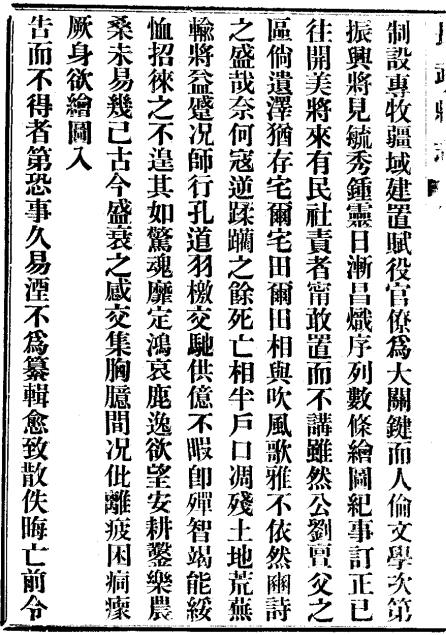 制設專牧疆域建置賦役官僚爲大關鍵而人倫文學次第
振興將見毓秀鍾靈日漸昌熾序列數條繪圖紀事訂正已
往開美將來有民社責者甯敢置而不講雖然公劉亶父之
區倘遺澤猶存宅爾宅田爾田相與吹風歌雅不依然豳詩
之盛哉奈何寇逆蹂躪之餘死亡相半戶口凋殘土地荒蕪
輸將益蹙况師行孔道羽檄交馳供億不暇卽殫智竭能綏
恤招徠之不遑其如驚魂靡定鴻哀鹿逸欲望安耕鑿樂農
桑未易幾已古今盛衰之感交集胸臆間况仳離疲困痌瘝
厥身欲繪圖入
告而不得者第恐事久易湮不爲纂輯愈致散佚晦亡前令